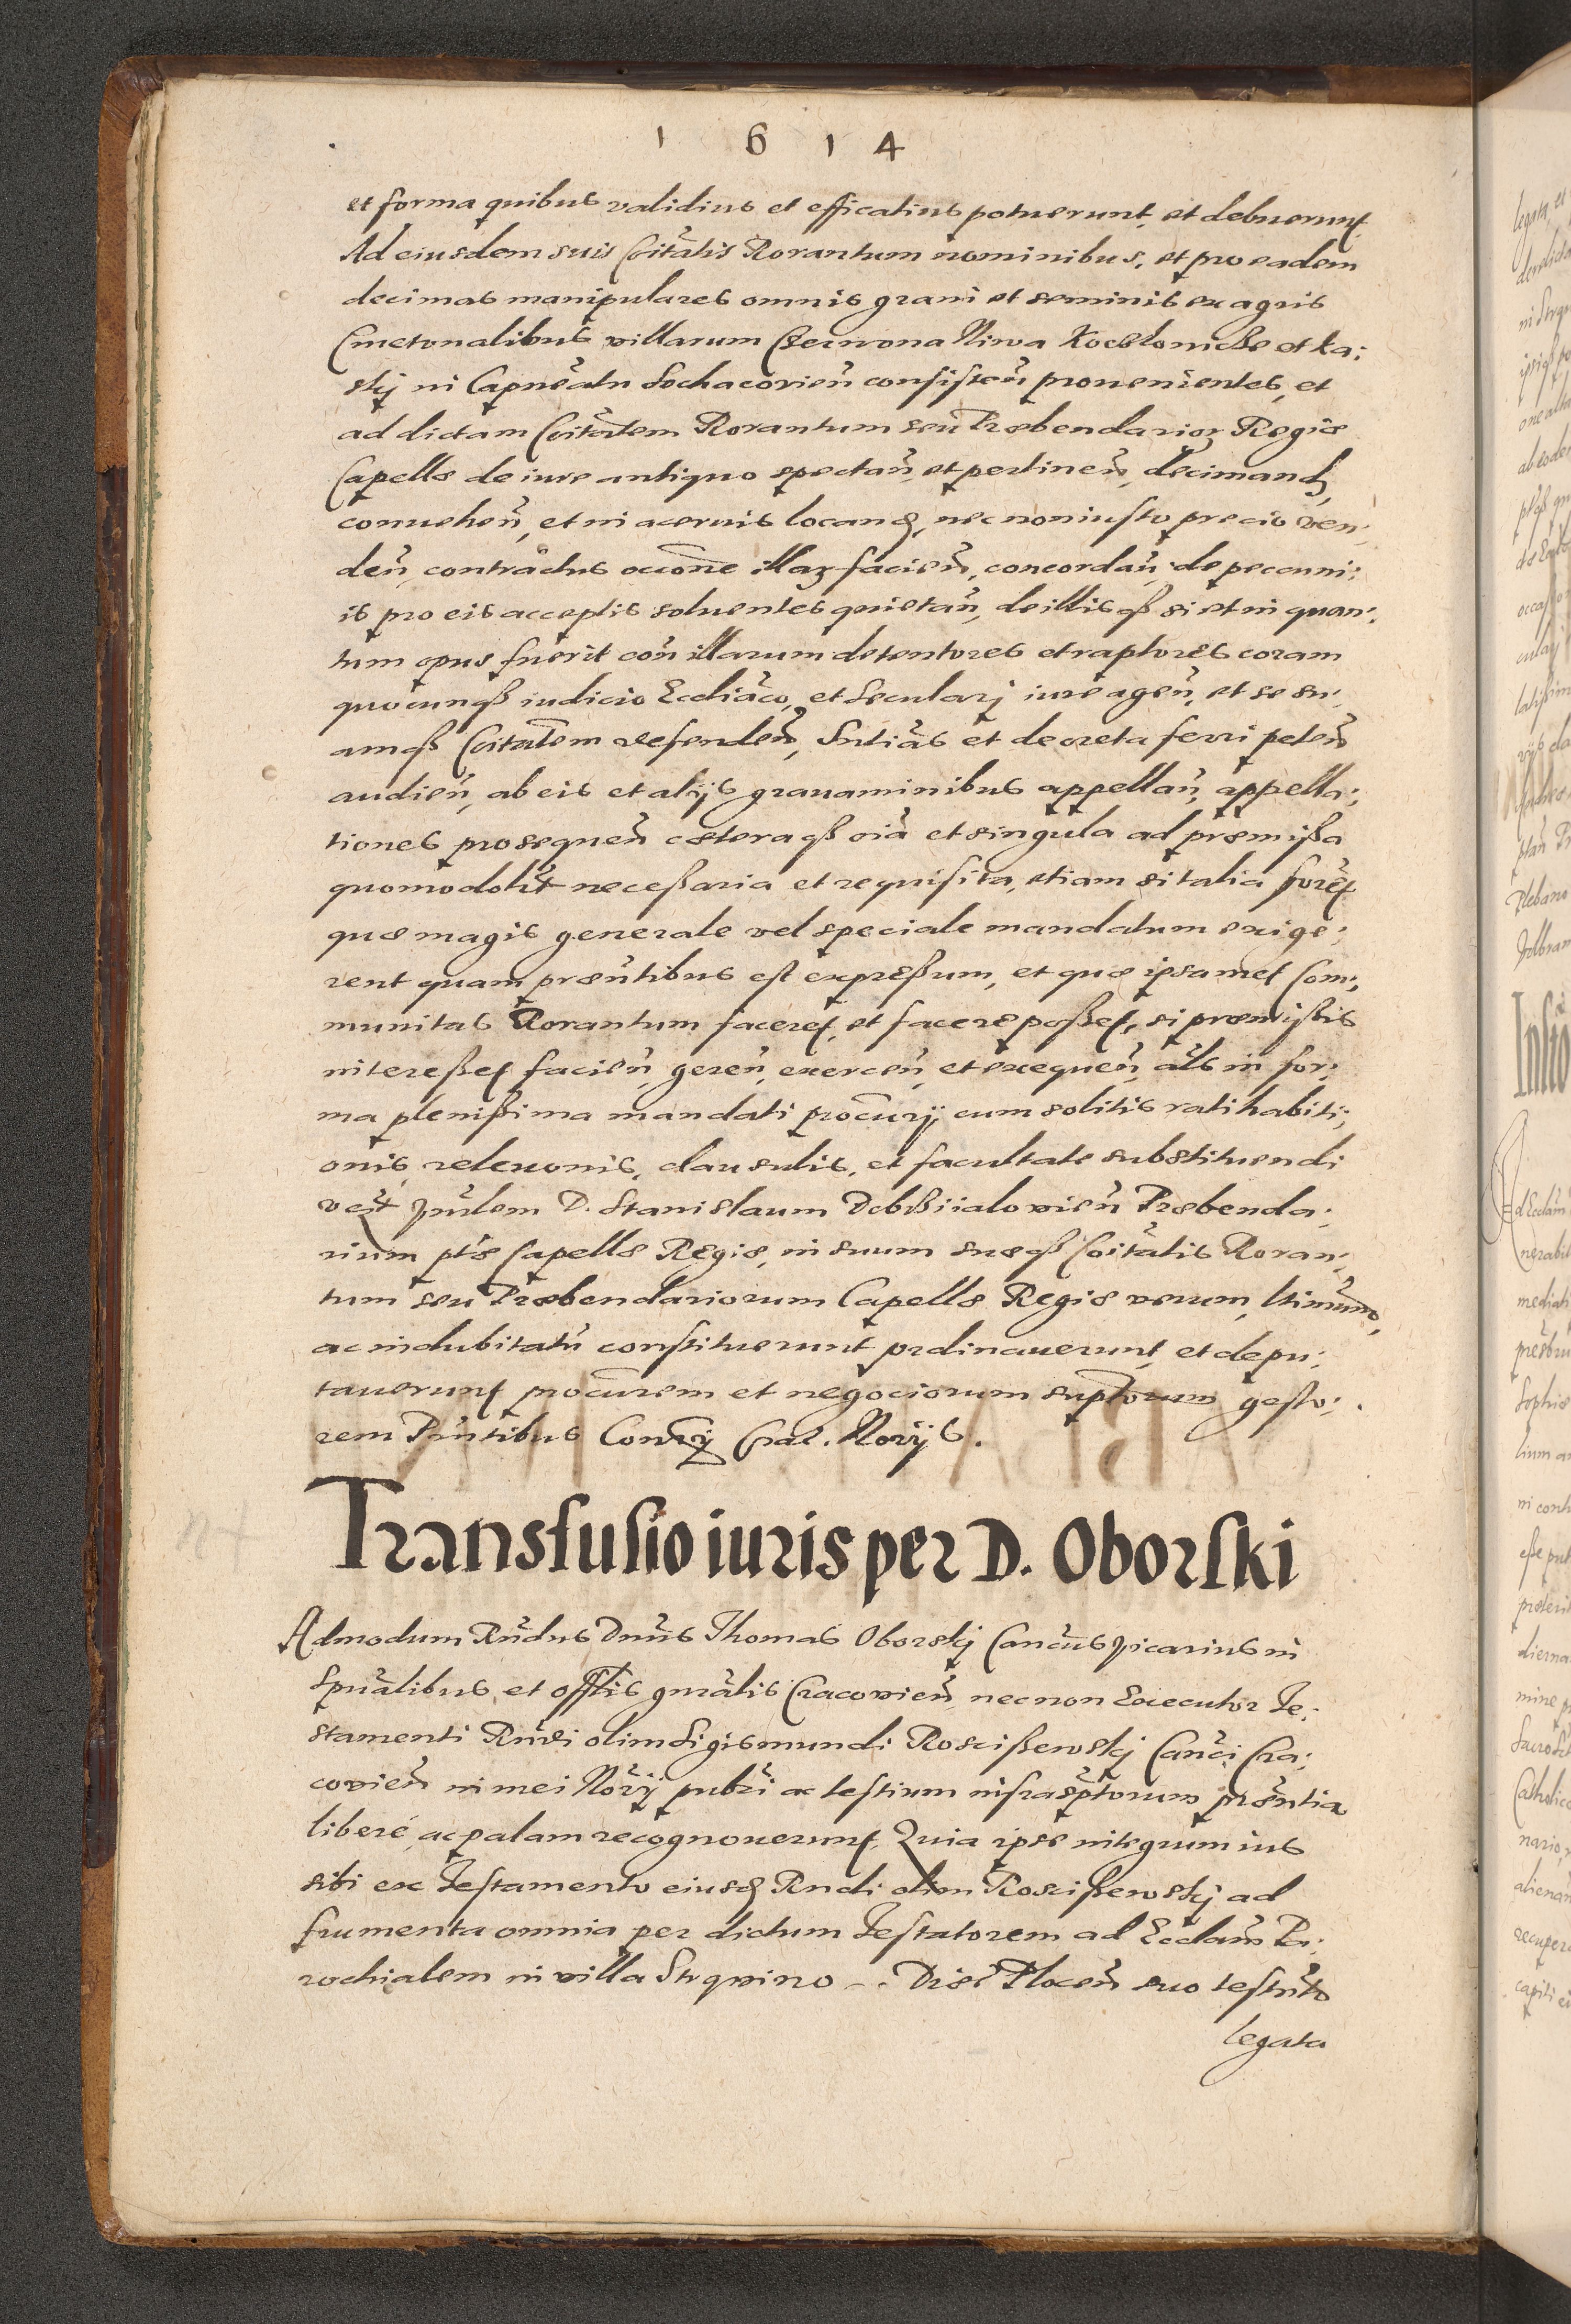 1 6 1 4
et forma quibus validius et efficatius potuerunt, et debuerunt
Ad eiusdem suis Coitatis Rorantum nominibus, et pro eadem
decimas manipulares omnis grani et seminis ex agris
Cmetonalibus villarum Czerwona Niwa Kozlowicze et ka:
skj in Capneatu Sochacovien̄ consisten̄ provenientes, et
ad dictam Coitatem Rorantum seu Præbendarior Regiæ
Capellæ de iure antiquo spectan̄, et pertinen̄, decimand,
convehen̄, et in acervis locand, nec non iusto precio ven:
den̄, contractus occone illar facien̄, concordan̄, de pecuni:
is pro eis acceptis solventes quietan̄, de illisqß si et in quan:
tum opus fuerit con illarum detentores et raptores coram
quocunqß iudicio Eccliaco, et Secularj iure agen̄, et se su:
amqß Coitatem defenden̄, Sntias et decreta ferri peten̄
audien̄, ab eis et alijs gravaminibus appellan̄, appella:
tiones prosequen̄ cæteraqß oia et singula ad præmißa
quomodolibt neceßaria et requisita, etiam si talia foret
quæ magis generale vel speciale mandatum exige:
rent quam præntibus est expreßum, et quæ ipsamet Com:
munitas Rorantum faceret, et facere poßet, si præmißis
intereßet facien̄, geren̄, exercen̄, et exequen̄, als in for:
ma plenißima mandati procurij cum solitis ratihabiti:
onis, relevonis, clausulis, et facultate substituendi
D. Stanislaum Præbenda:
rium pte Capellæ Regiæ, in suum suæqß Coitatis Roran:
tum seu Præbendariorum Capellæ Regiæ verum, ltimum,
ac indubitatu constituerunt ordinaverunt, et depu:
taverunt procurem et negociorum suptorum gesto:
rem Pntibus Crac. Norijs.
Transfusio iuris per D. Oborski
Admodum Rndus Dnus Thomas Oborskj Cancus Vicarius in
Spualibus, et offlis gnralis Cracovien̄ necnon Executor Te:
stamenti Rndi olim Sigismundi Roscißewskj Canci Cra:
covien̄ in mei Norij pubci ac testium infrascptorum præntia
libere, ac palam recognoverunt. Quia ipse integrum ius
sibi ex Testamento eiusd Rndi olim Roscißewskj ad
frumenta omnia per dictum Testatorem ad Ecclam Pa:
rochialem in villa Diæc Plocen̄ suo testnto
legata